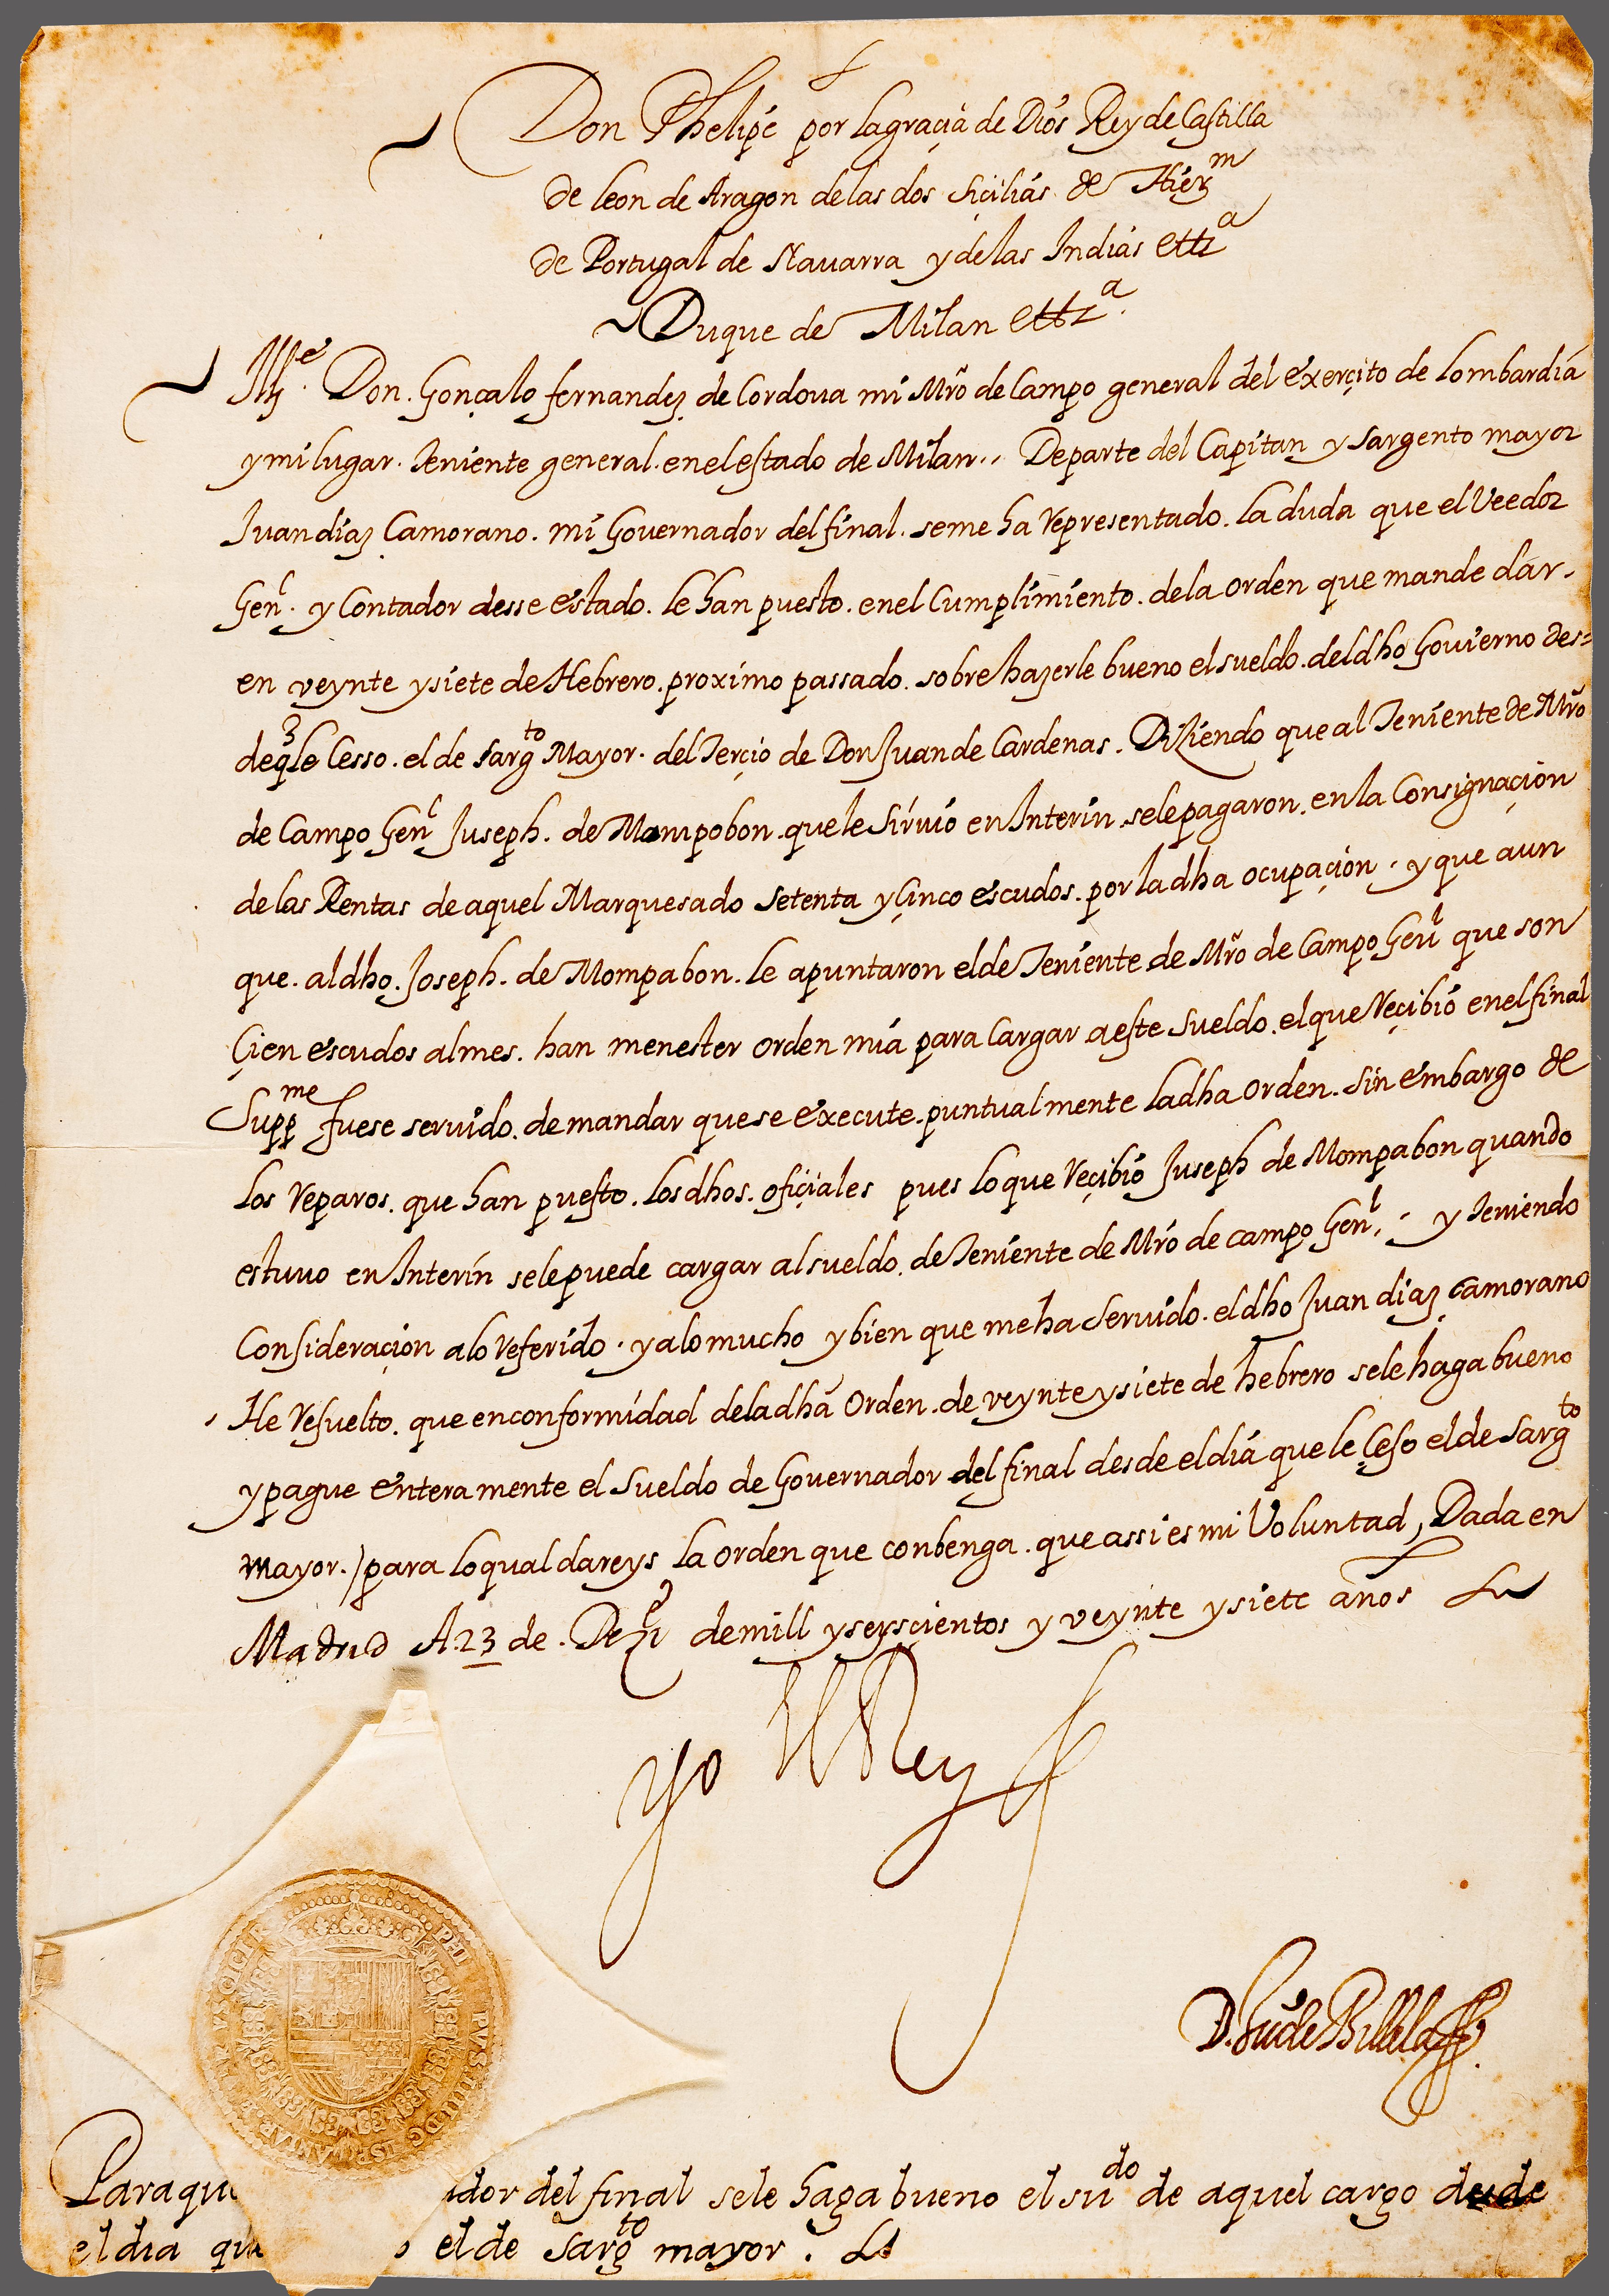 Don Phelipe por la graçia de Dios Rey de Castilla
de leon de Aragon de las dos siçilias de Hierm
de Portugal de Nauarra y de las Indias ettca
Duque de Milan ettca.
Ille. Don. Gonçalo fernandez de Cordoua mi Mro de Campo general del exerçito de lombardia
y mi lugar. teniente general. en el estado de Milan.. De parte del Capitan y sargento mayor
Juan diaz Çamorano. mi Gouernador del final. se me ha representado. la duda que el Veedor
Genl. y Contador desse estado. le han puesto. en el Cumplimiento. de la orden que mande dar.
en veynte y siete de Hebrero. proximo passado. sobre hazerle bueno el sueldo. del dho Gouierno des=
de q le Cesso. el de sargto Mayor. del Terçio de Don Juan de Cardenas. Diziendo que al Teniente de Mro
de Campo Genl Juseph. de Mompobon. que le siruio en Interin. se le pagaron. en la Consignaçion
de las Rentas de aquel Marquesado setenta y Çinco escudos. por la dha ocupaçion. y que aun
que. al dho. Joseph. de Mompabon. le apuntaron el de Teniente de Mro de Campo Genl que son
Çien escudos al mes. han menester orden mia para Cargar a este sueldo. el que Reçibio en el final
Suppme fuese seruido. de mandar que se execute. puntualmente la dha orden. sin embargo de
los reparos. que han puesto. los dhos. ofiçiales pues lo que reçibio Juseph de Mompabon quando
estuuo en Interin se le puede cargar al sueldo. de Teniente de Mro de campo Genl. y teniendo
Consideraçion a lo referido. y a lo mucho y bien que me ha seruido. el dho Juan diaz Çamorano
He resuelto. que en conformidad de la dha orden. de veynte y siete de hebrero se le haga bueno
y pague enteramente el sueldo de Gouernador del final desde el dia que le Çeso el de sargto
mayor./ para lo qual dareys la orden que conbenga. que assi es mi Voluntad, Dada en
Madrid A 23 de. Dezre de mill y seysçientos y veynte y siete años
yo el Rey
D. Ju de Billela
Para que dor del final se le haga bueno el sudo de aquel cargo desde
el dia qu o el de sargto mayor.